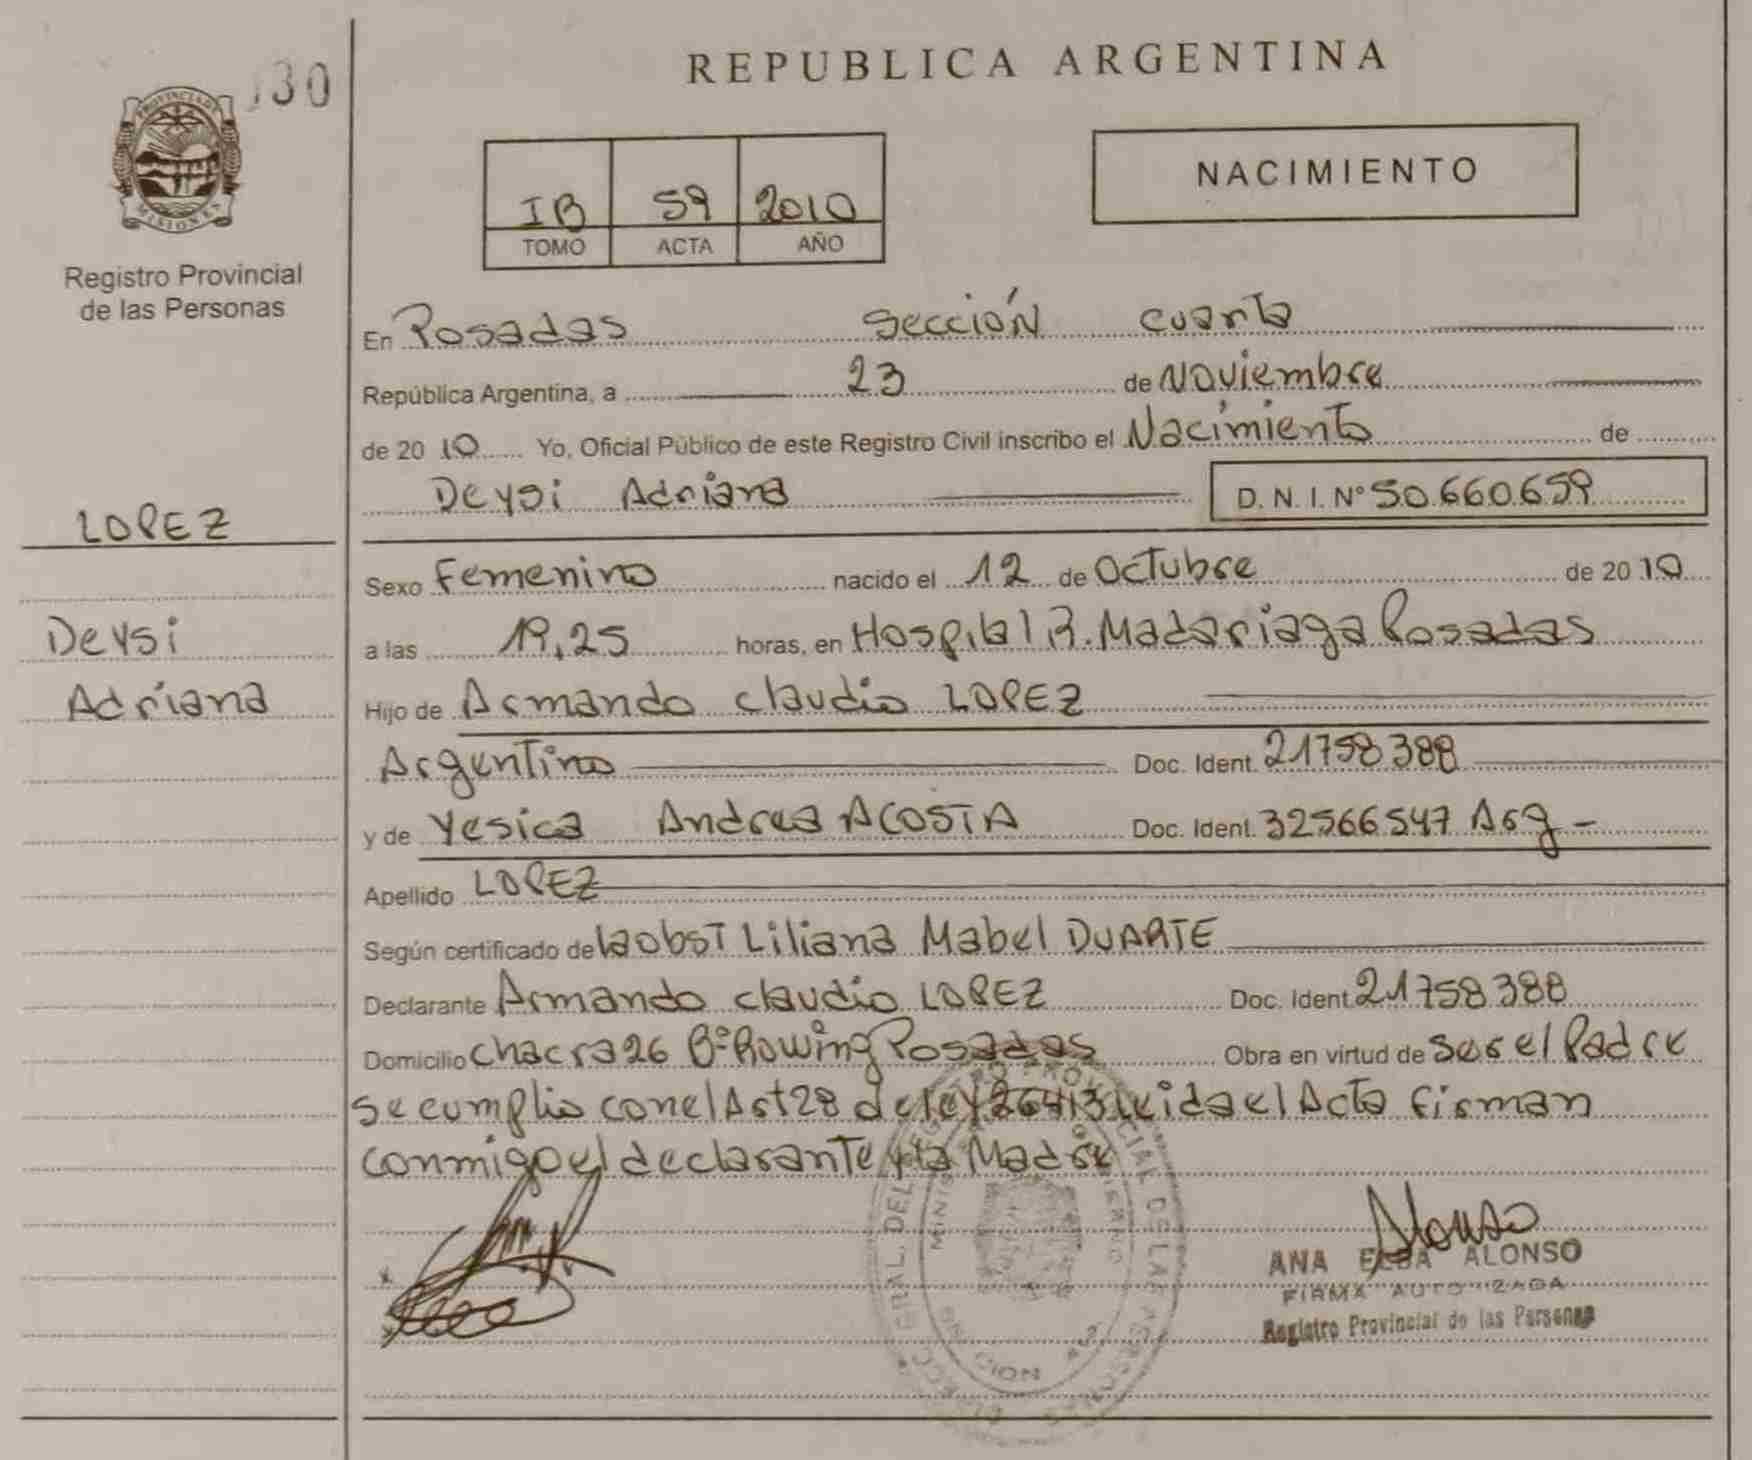 REPUBLICA ARGENTINA
130
PROVINCIA DE
MISIONES
Registro Provincial
de las Personas
IB 59 2010
TOMO ACTA AÑO
NACIMIENTO
LOPEZ
Deysi
Adriana
En Posadas Sección cuarta
República Argentina, a 23 de Noviembre
de 2010 Yo, Oficial Público de este Registro Civil inscribo el Nacimiento de
Deysi Adriana D. N. I. N° 50.660.659
Sexo Femenino nacido el 12 de Octubre de 2010
a las 19,25 horas, en Hospital R. Madariaga Posadas
Hijo de Armando Claudio LOPEZ
Argentino Doc. Ident. 21758388
y de Yesica Andrea ACOSTA Doc. Ident. 32566547 Arg -
Apellido LOPEZ
Según certificado de la obst Liliana Mabel DUARTE
Declarante Armando Claudio LOPEZ Doc. Ident. 21758388
Domicilio Chacra 26 B° Rowing Posadas Obra en virtud de ser el Padre
se cumplio con el Art 28 de ley 26413 leida el Acta firman
conmigo el declarante y la Madre
Alonso
ANA ELBA ALONSO
FIRMA AUTORIZADA
Registro Provincial de las Personas